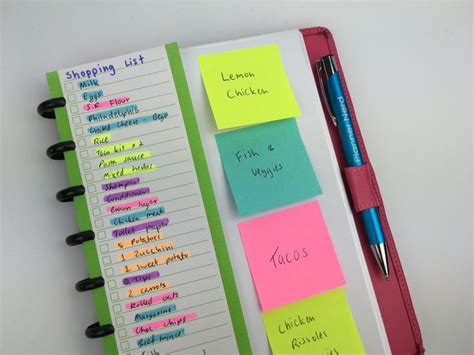 Shopping List
Milk
Eggs
S.R. Flour
Philadelphia
Grated Cheese - Bega
Rice
Taco kit x 2
Pasta sauce
Mixed herbs
Shampoo
Conditioner
Chicken meat
Toilet paper
5 Potatoes
1 Zucchini
1 sweet potato
Q Tips
2 carrots
Rolled oats
Margarine
Choc. chips
Beef mince
Fish
Lemon
Chicken
Fish &
Veggies
Tacos
Chicken
Rissoles
Planner Nerd